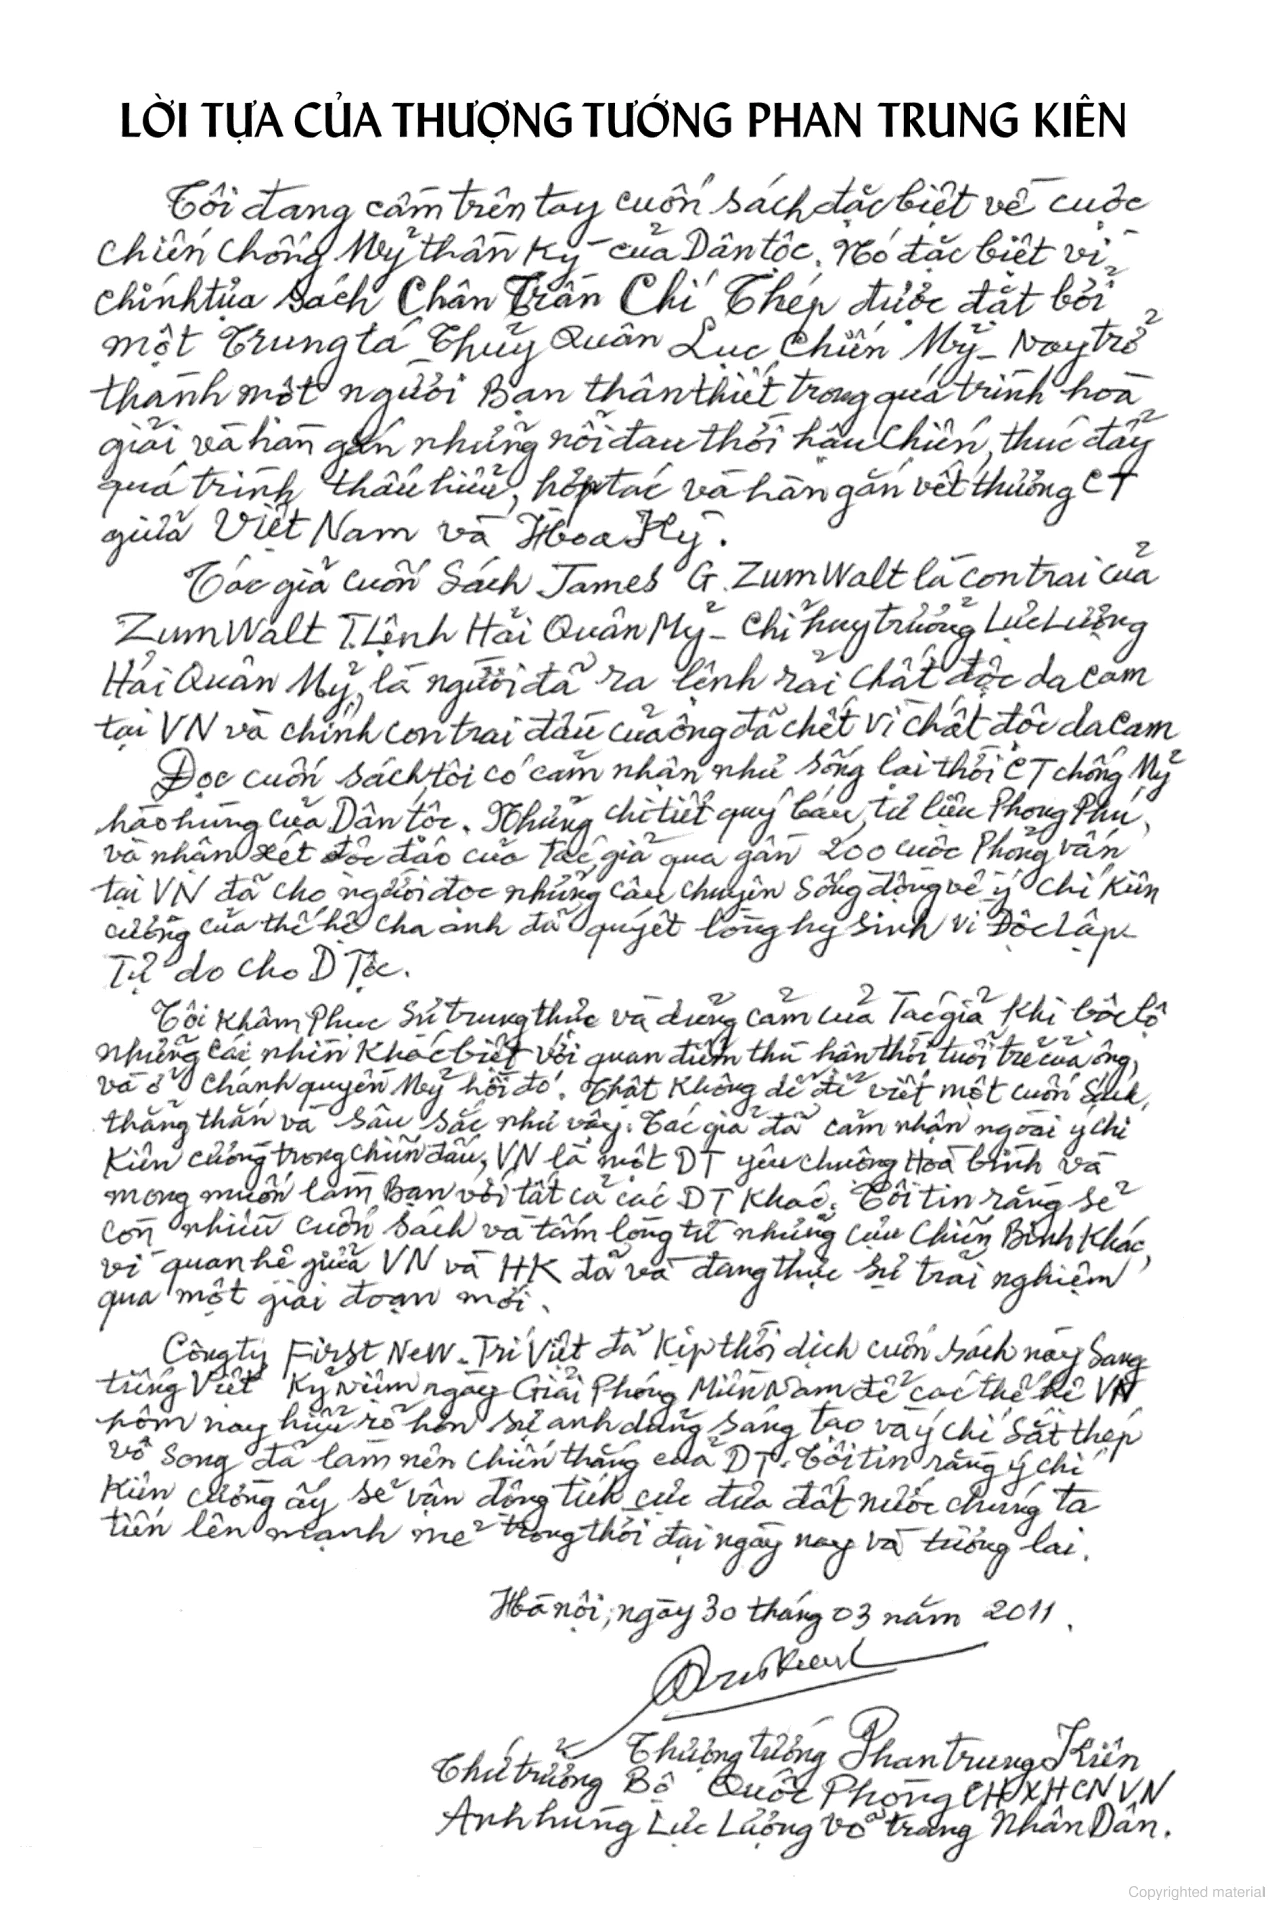 LỜI TỰA CỦA THƯỢNG TƯỚNG PHAN TRUNG KIÊN
Tôi đang cầm trên tay cuốn sách đặc biệt về cuộc
chiến chống Mỹ thần kỳ - của Dân tộc. Nó đặc biệt vì
chính tựa sách Chân Trần Chí Thép được đặt bởi
một Trung tá Thủy Quân Lục Chiến Mỹ - Nay trở
thành một người Bạn thân thiết trong quá trình hoà
giải và hàn gắn những nỗi đau thời hậu chiến, thúc đẩy
quá trình thấu hiểu, hợp tác và hàn gắn vết thương CT
giữa Việt Nam và Hoa Kỳ.
Tác giả cuốn sách James G. ZumWalt là con trai của
ZumWalt T.Lệnh Hải Quân Mỹ - Chỉ huy trưởng Lực Lượng
Hải Quân Mỹ, là người đã ra lệnh rải chất độc da cam
tại VN và chính con trai đầu của ông đã chết vì chất độc da cam
Đọc cuốn sách, tôi có cảm nhận như sống lại thời CT chống Mỹ
hào hùng của Dân tộc. Những chi tiết quý báu, tư liệu Phong Phú,
và nhận xét độc đáo của Tác giả qua gần 200 cuộc Phỏng vấn
tại VN đã cho người đọc những câu chuyện sống động về ý chí kiên
cường của thế hệ cha anh đã quyết lòng hy sinh vì Độc Lập
Tự do cho D Tộc.
Tôi khâm Phục sự trung thực và dũng cảm của Tác giả khi bộc lộ
những cái nhìn khác biệt với quan điểm thù hận thời tuổi trẻ của ông,
và ở chánh quyền Mỹ hồi đó. Thật không dễ để viết một cuốn sách,
thẳng thắn và sâu sắc như vậy. Tác giả đã cảm nhận ngoài ý chí
kiên cường trong chiến đấu, VN là một DT yêu chuộng Hoà bình và
mong muốn làm Bạn với tất cả các DT khác. Tôi tin rằng sẽ
còn nhiều cuốn sách và tấm lòng từ những Cựu Chiến Binh khác,
vì quan hệ giữa VN và HK đã và đang thực sự trải nghiệm
qua một giai đoạn mới.
Công ty First New - Trí Việt đã kịp thời dịch cuốn sách này sang
tiếng Việt kỷ niệm ngày Giải Phóng Miền Nam để các thế hệ VN
hôm nay hiểu rõ hơn sự anh dũng sáng tạo và ý chí sắt thép
vô song đã làm nên chiến thắng của DT. Tôi tin rằng ý chí
kiên cường ấy sẽ vận động tích cực đưa đất nước chúng ta
tiến lên mạnh mẽ trong thời đại ngày nay và tương lai.
Hà nội, ngày 30 tháng 03 năm 2011.
Thượng tướng Phan trung Kiên
Thứ trưởng Bộ Quốc Phòng CHXHCN VN
Anh hùng Lực Lượng võ trang Nhân Dân.
Copyrighted material